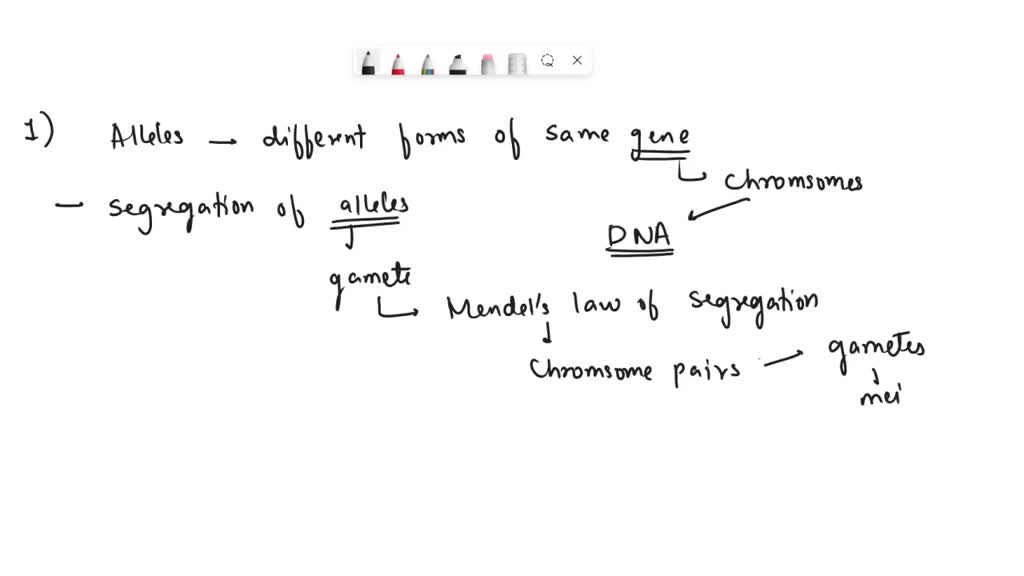 1) Alleles → different forms of same gene
↳ Chromsomes
– segregation of alleles
DNA
gamete
↳ Mendel's law of segregation
Chromsome pairs → gametes
mei